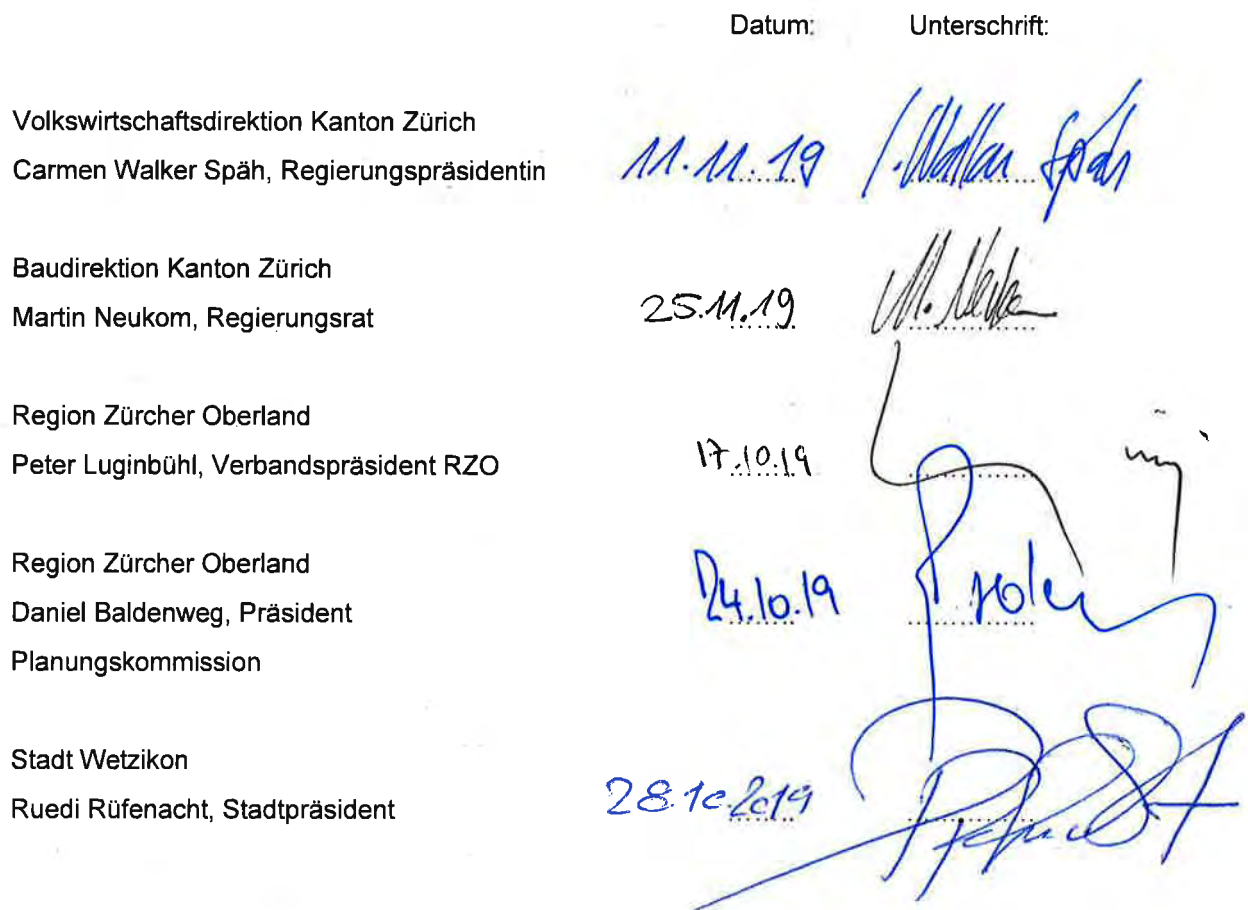 Datum: Unterschrift:
Volkswirtschaftsdirektion Kanton Zürich
Carmen Walker Späh, Regierungspräsidentin 11.11.19 C. Walker Späh
Baudirektion Kanton Zürich
Martin Neukom, Regierungsrat 25.11.19 M. Neukom
Region Zürcher Oberland
Peter Luginbühl, Verbandspräsident RZO 17.10.19
Region Zürcher Oberland
Daniel Baldenweg, Präsident 24.10.19
Planungskommission
Stadt Wetzikon
Ruedi Rüfenacht, Stadtpräsident 28.10.2019